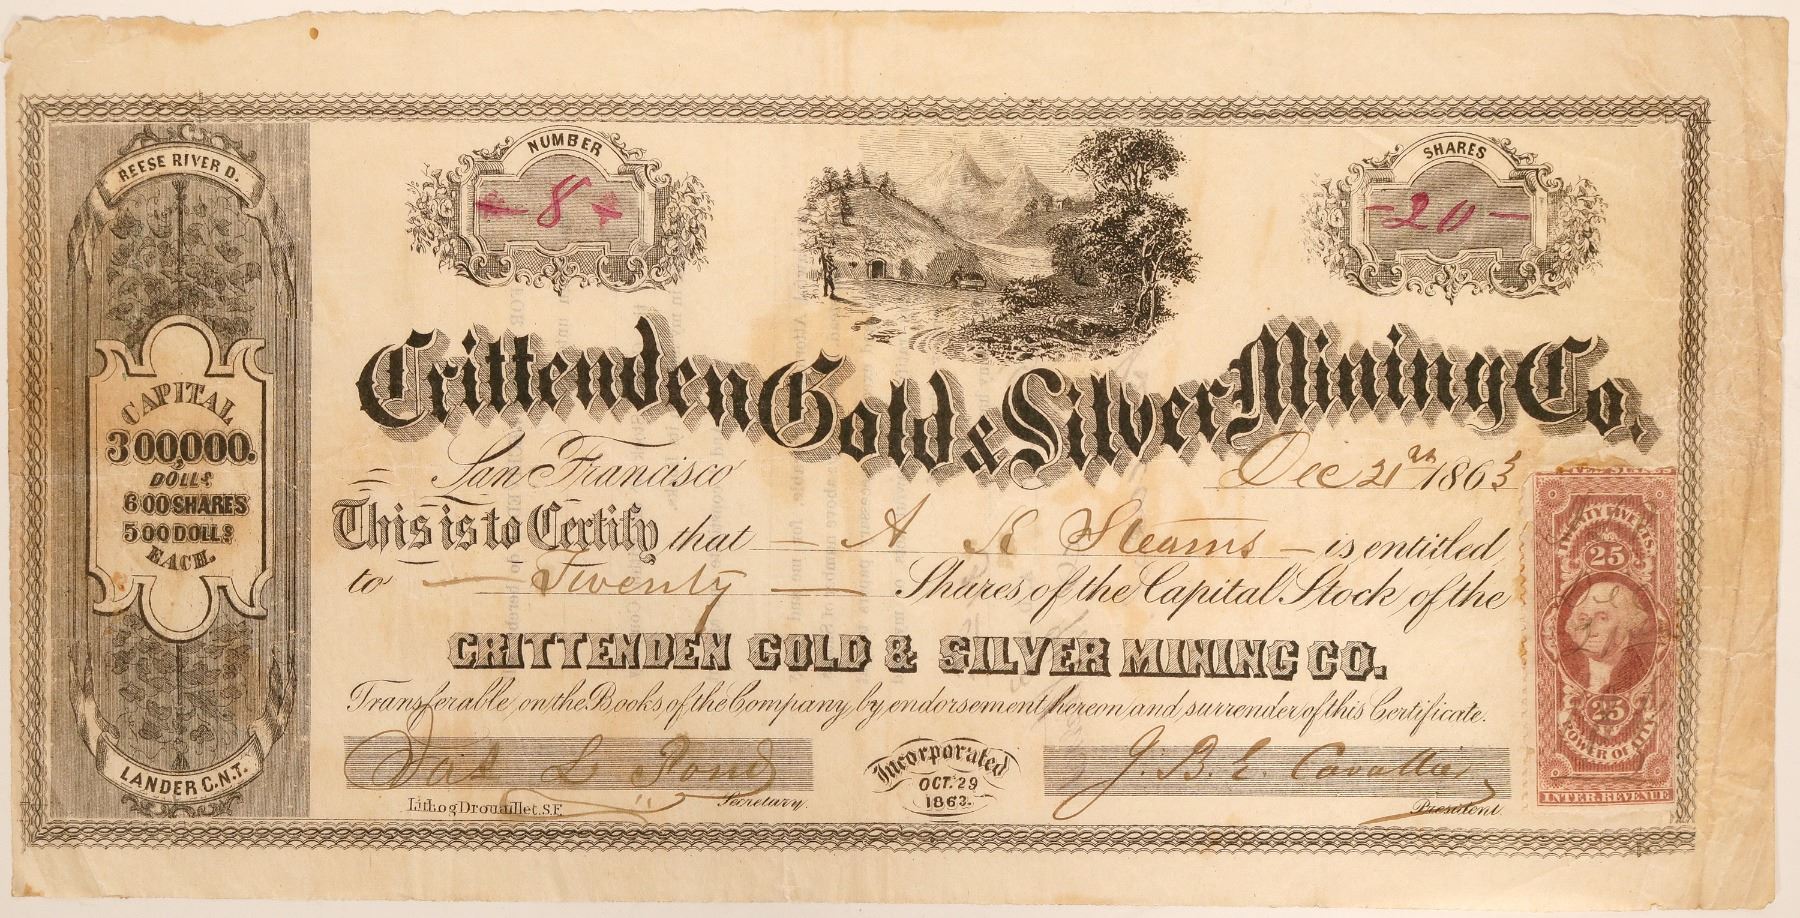 REESE RIVER D.
CAPITAL
300,000.
DOLLS
600 SHARES
500 DOLLS
EACH.
LANDER C.N.T.
NUMBER
8
SHARES
-20-
Crittenden Gold & Silver Mining Co.
San Francisco Dec 21 1863
This is to Certify that — A Stearns — is entitled
to — Twenty — Shares of the Capital Stock of the
CRITTENDEN GOLD & SILVER MINING CO.
Transferable on the Books of the Company by endorsement hereon and surrender of this Certificate.
Jas L Pond
Secretary.
Lithog Drouaillet. S.F.
Incorporated
OCT. 29
1863.
J. B. E. Cavallier
President.
TWENTY FIVE CTS.
25
25
POWER OF ATT'Y.
INTER. REVENUE